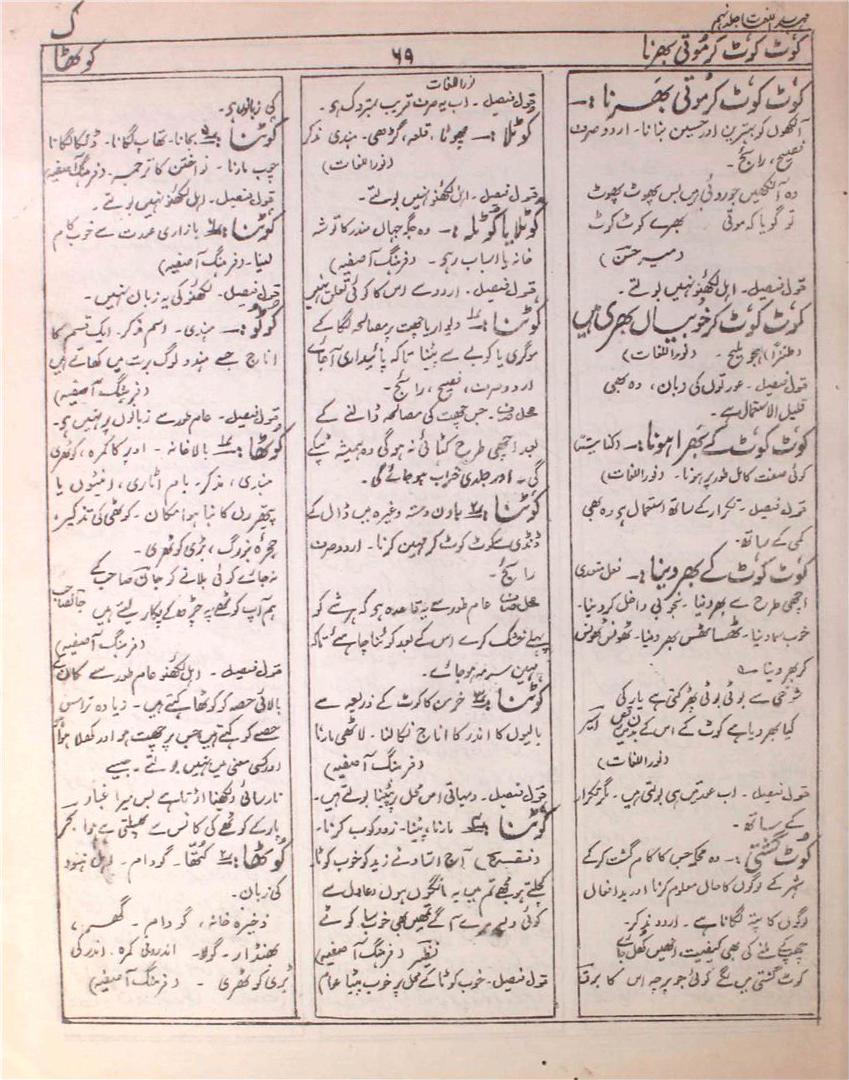 مہذب اللغات جلد نہم
ک
کوٹ کوٹ کر موتی بھرنا
۶۹
کوٹھا
کوٹ کوٹ کر موتی بھرنا :۔
آنکھوں کو بہترین اور حسین بنانا۔ اردو صرف
فصیح، رائج۔
وہ آنکھیں جو روئی ہیں بس پھوٹ پھوٹ
تو گویا کہ موتی بھرے کوٹ کوٹ
(میر حسن)
قول فیصل۔ اہل لکھنؤ نہیں بولتے۔
کوٹ کوٹ کر خوبیاں بھری ہیں
(طنزاً) ہجو ملیح۔ (نوراللغات)
قول فیصل۔ عورتوں کی زبان، وہ بھی
قلیل الاستعمال ہے۔
کوٹ کوٹ کے بھرا ہونا :۔ (کنایۃً)
کوئی صفت کامل طور پر ہونا۔ (نوراللغات)
قول فیصل۔ تکرار کے ساتھ استعمال ہے وہ بھی
کمی کے ساتھ۔
کوٹ کوٹ کے بھر دینا :۔ فعل متعدی
اچھی طرح سے بھر دینا۔ بخوبی داخل کر دینا۔
خوب سما دینا۔ ٹھسا ٹھس بھر دینا۔ ٹھونس ٹھونس
کر بھر دینا ؎
شوخی سے بوٹی بوٹی پھڑکتی ہے یار کی
کیا بھر دیا ہے کوٹ کے اس کے بدن میں اسیر
(نوراللغات)
قول فیصل۔ اب عورتیں ہی بولتی ہیں۔ مگر تکرار
کے ساتھ۔
کوٹ گشتی :۔ وہ محکمہ جس کا کام گشت کر کے
شہر کے لوگوں کا حال معلوم کرنا اور بد افعال
لوگوں کا پتہ لگانا ہے۔ اردو مذکر۔
چھپکے ملنے کی بھی کیفیت، انھیں کھل جائے
کوٹ گشتی میں لگے کوئی جو پرچہ اس کا برق
نوراللغات
قول فیصل۔ اب یہ صرف قریب بمتروک ہے۔
کوٹلا :۔ چھوٹا، قلعہ، گڑھی۔ ہندی مذکر
(نوراللغات)
قول فیصل۔ اہل لکھنؤ نہیں بولتے۔
کوٹلا یا کوٹلہ :۔ وہ جگہ جہاں مندر کا توشہ
خانہ یا اسباب رہے۔ (فرہنگ آصفیہ)
قول فیصل۔ اردو سے اس کا کوئی تعلق نہیں
کوٹنا :۱ دیوار یا چھت پر مصالحہ لگا کے
موگری یا کوبے سے پیٹنا تاکہ پائیداری آجائے
اردو صرف، فصیح، رائج۔
محل صرف۔ جس چھت کی مصالحہ ڈالنے کے
بعد اچھی طرح کٹائی نہ ہوگی وہ ہمیشہ ٹپکے
گی۔ اور جلدی خراب ہو جائے گی۔
کوٹنا :۲ ہاون دستہ وغیرہ میں ڈال کے
ڈنڈی سے کوٹ کوٹ کر مہین کرنا۔ اردو صرف
رائج۔
محل صرف عام طور سے یہ قاعدہ ہے کہ ہر شے کو
پہلے خشک کرے اس کے بعد کوٹنا چاہئے تاکہ
مہین سرمہ ہو جائے۔
کوٹنا :۳ خرمن کا کوٹ کے ذریعہ سے
بالیوں کا اندر کا اناج نکالنا۔ لاٹھی مارنا
(فرہنگ آصفیہ)
قول فیصل۔ دیہاتی اس محل پر پیٹنا بولتے ہیں۔
کوٹنا :۴ مارنا، پیٹنا۔ زد و کوب کرنا۔
(فقرہ) آج استاد نے زید کو خوب کوٹا
کوئی
نظیر (فرہنگ آصفیہ)
قول فیصل۔ خوب کوٹا کے محل پر خوب پیٹا عام
کی زبانوں ہے۔
کوٹنا :۵ بجانا۔ تھاپ لگانا۔ ڈنکا لگانا
چوب مارنا۔ نواختن کا ترجمہ۔ (فرہنگ آصفیہ)
قول فیصل۔ اہل لکھنؤ نہیں بولتے۔
کوٹنا :۶ بازاری عورت سے خوب کام
لینا۔ (فرہنگ آصفیہ)
قول فیصل۔ لکھنؤ کی یہ زبان نہیں۔
کوٹو :۔ ہندی۔ اسم مذکر۔ ایک قسم کا
اناج جسے ہندو لوگ برت میں کھاتے ہیں
(فرہنگ آصفیہ)
قول فیصل۔ عام طور سے زبانوں پر نہیں ہے۔
کوٹھا :۱ بالا خانہ۔ اوپر کا کمرہ، کوٹھری
ہندی، مذکر۔ بام اٹاری، اینٹوں یا
پتھروں کا بنا ہوا مکان۔ کوٹھی کی تذکیر،
حجرۂ بزرگ، بڑی کوٹھری۔
نہ جائے کوئی بلانے کو جان صاحب کے
ہم آپ کوٹھے پہ چڑھ کے پکار لیتے ہیں جانصاحب
(فرہنگ آصفیہ)
قول فیصل۔ اہل لکھنؤ عام طور سے مکان کے
بالائی حصہ کو کوٹھا کہتے ہیں۔ زیادہ تر اس
حصے کو کہتے ہیں جس پر چھت ہو اور کھلا ہوا
اور کسی معنی میں نہیں بولتے۔ جیسے
نارسائی دیکھنا اڑتا ہے بس میرا غبار
یار کے کوٹھے کی کانس سے پھیلتی ہے ہوا بحر
کوٹھا :۲ کھتّا۔ گودام۔ اہل ہنود
کی زبان۔
ذخیرہ خانہ، گودام۔ گھر،
بھنڈار۔ گولا۔ اندرونی کمرہ۔ اندر کی
بڑی کوٹھری۔ (فرہنگ آصفیہ)